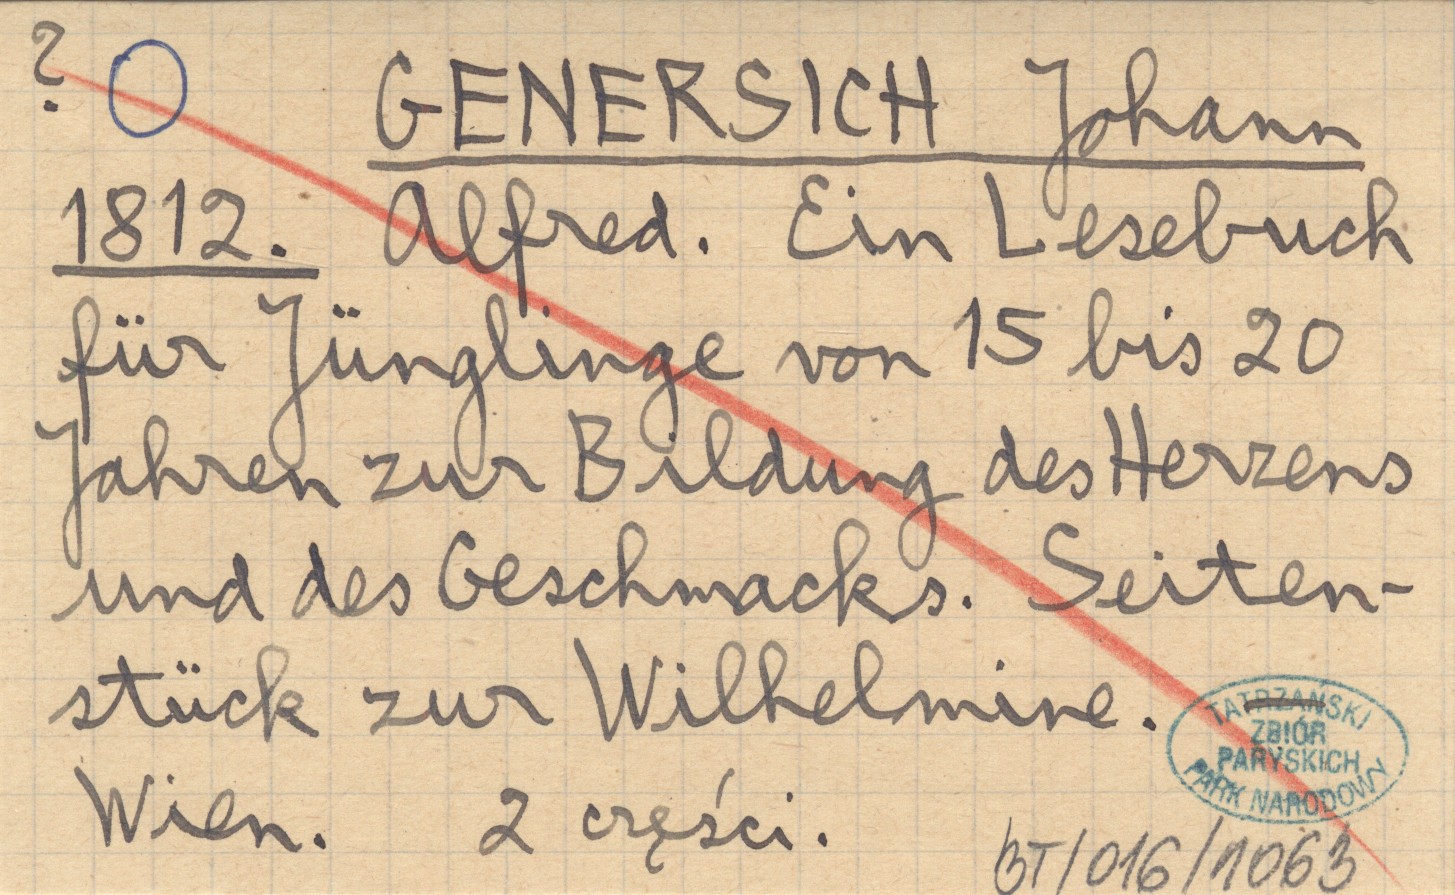 ?
GENERSICH Johann
1812. Alfred. Ein Lesebuch
für Jünglinge von 15 bis 20
Jahren zur Bildung des Herzens
und des Geschmacks. Seiten-
stück zur Wilhelmine.
Wien. 2 części.
TATRZAŃSKI
ZBIÓR
PARYSKICH
PARK NARODOWY
BT/016/1063